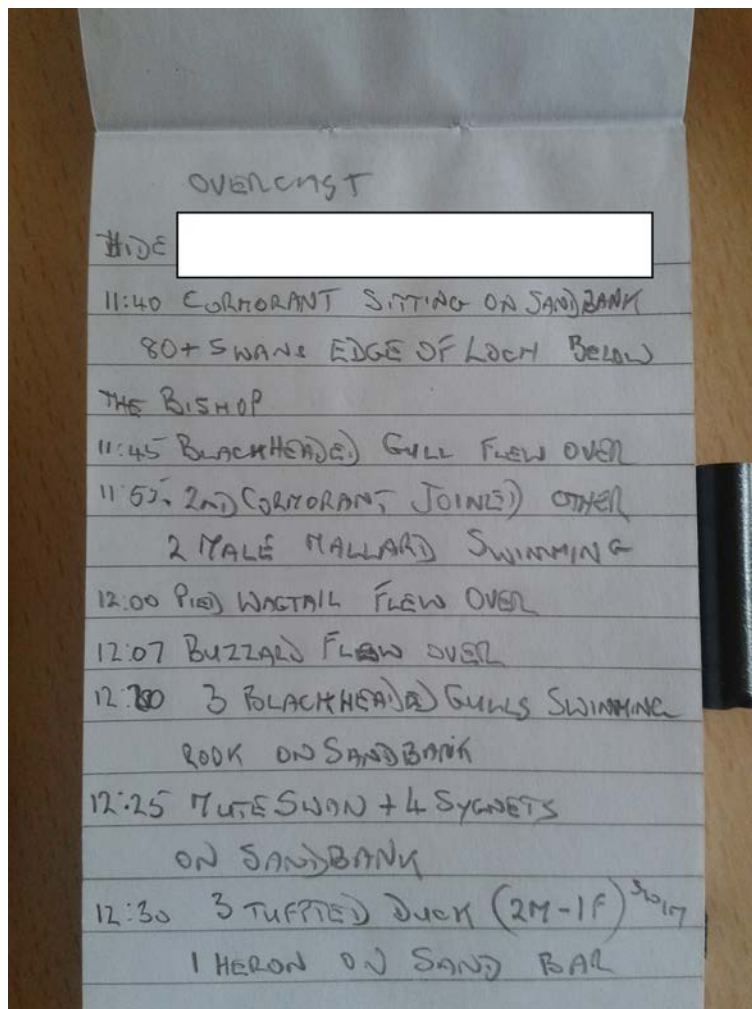 OVERCAST
HIDE
11:40 CORMORANT SITTING ON SANDBANK
80+ SWANS EDGE OF LOCH BELOW
THE BISHOP
11:45 BLACKHEADED GULL FLEW OVER
11:55 2ND CORMORANT JOINED OTHER
2 MALE MALLARD SWIMMING
12:00 PIED WAGTAIL FLEW OVER
12:07 BUZZARD FLEW OVER
3 BLACKHEADED GULLS SWIMMING
ROOK ON SANDBANK
12:25 MUTE SWAN + 4 SYGNETS
ON SANDBANK
12:30 3 TUFFTED DUCK (2M-1F) SWIM
1 HERON ON SAND BAR